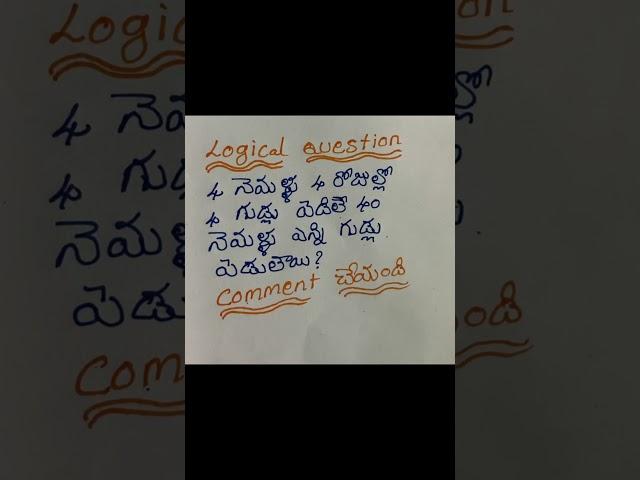 Logical Question
4 నెమళ్ళు 4 రోజుల్లో
4 గుడ్లు పెడితే 40
నెమళ్ళు ఎన్ని గుడ్లు
పెడుతాయి?
Comment చేయండి